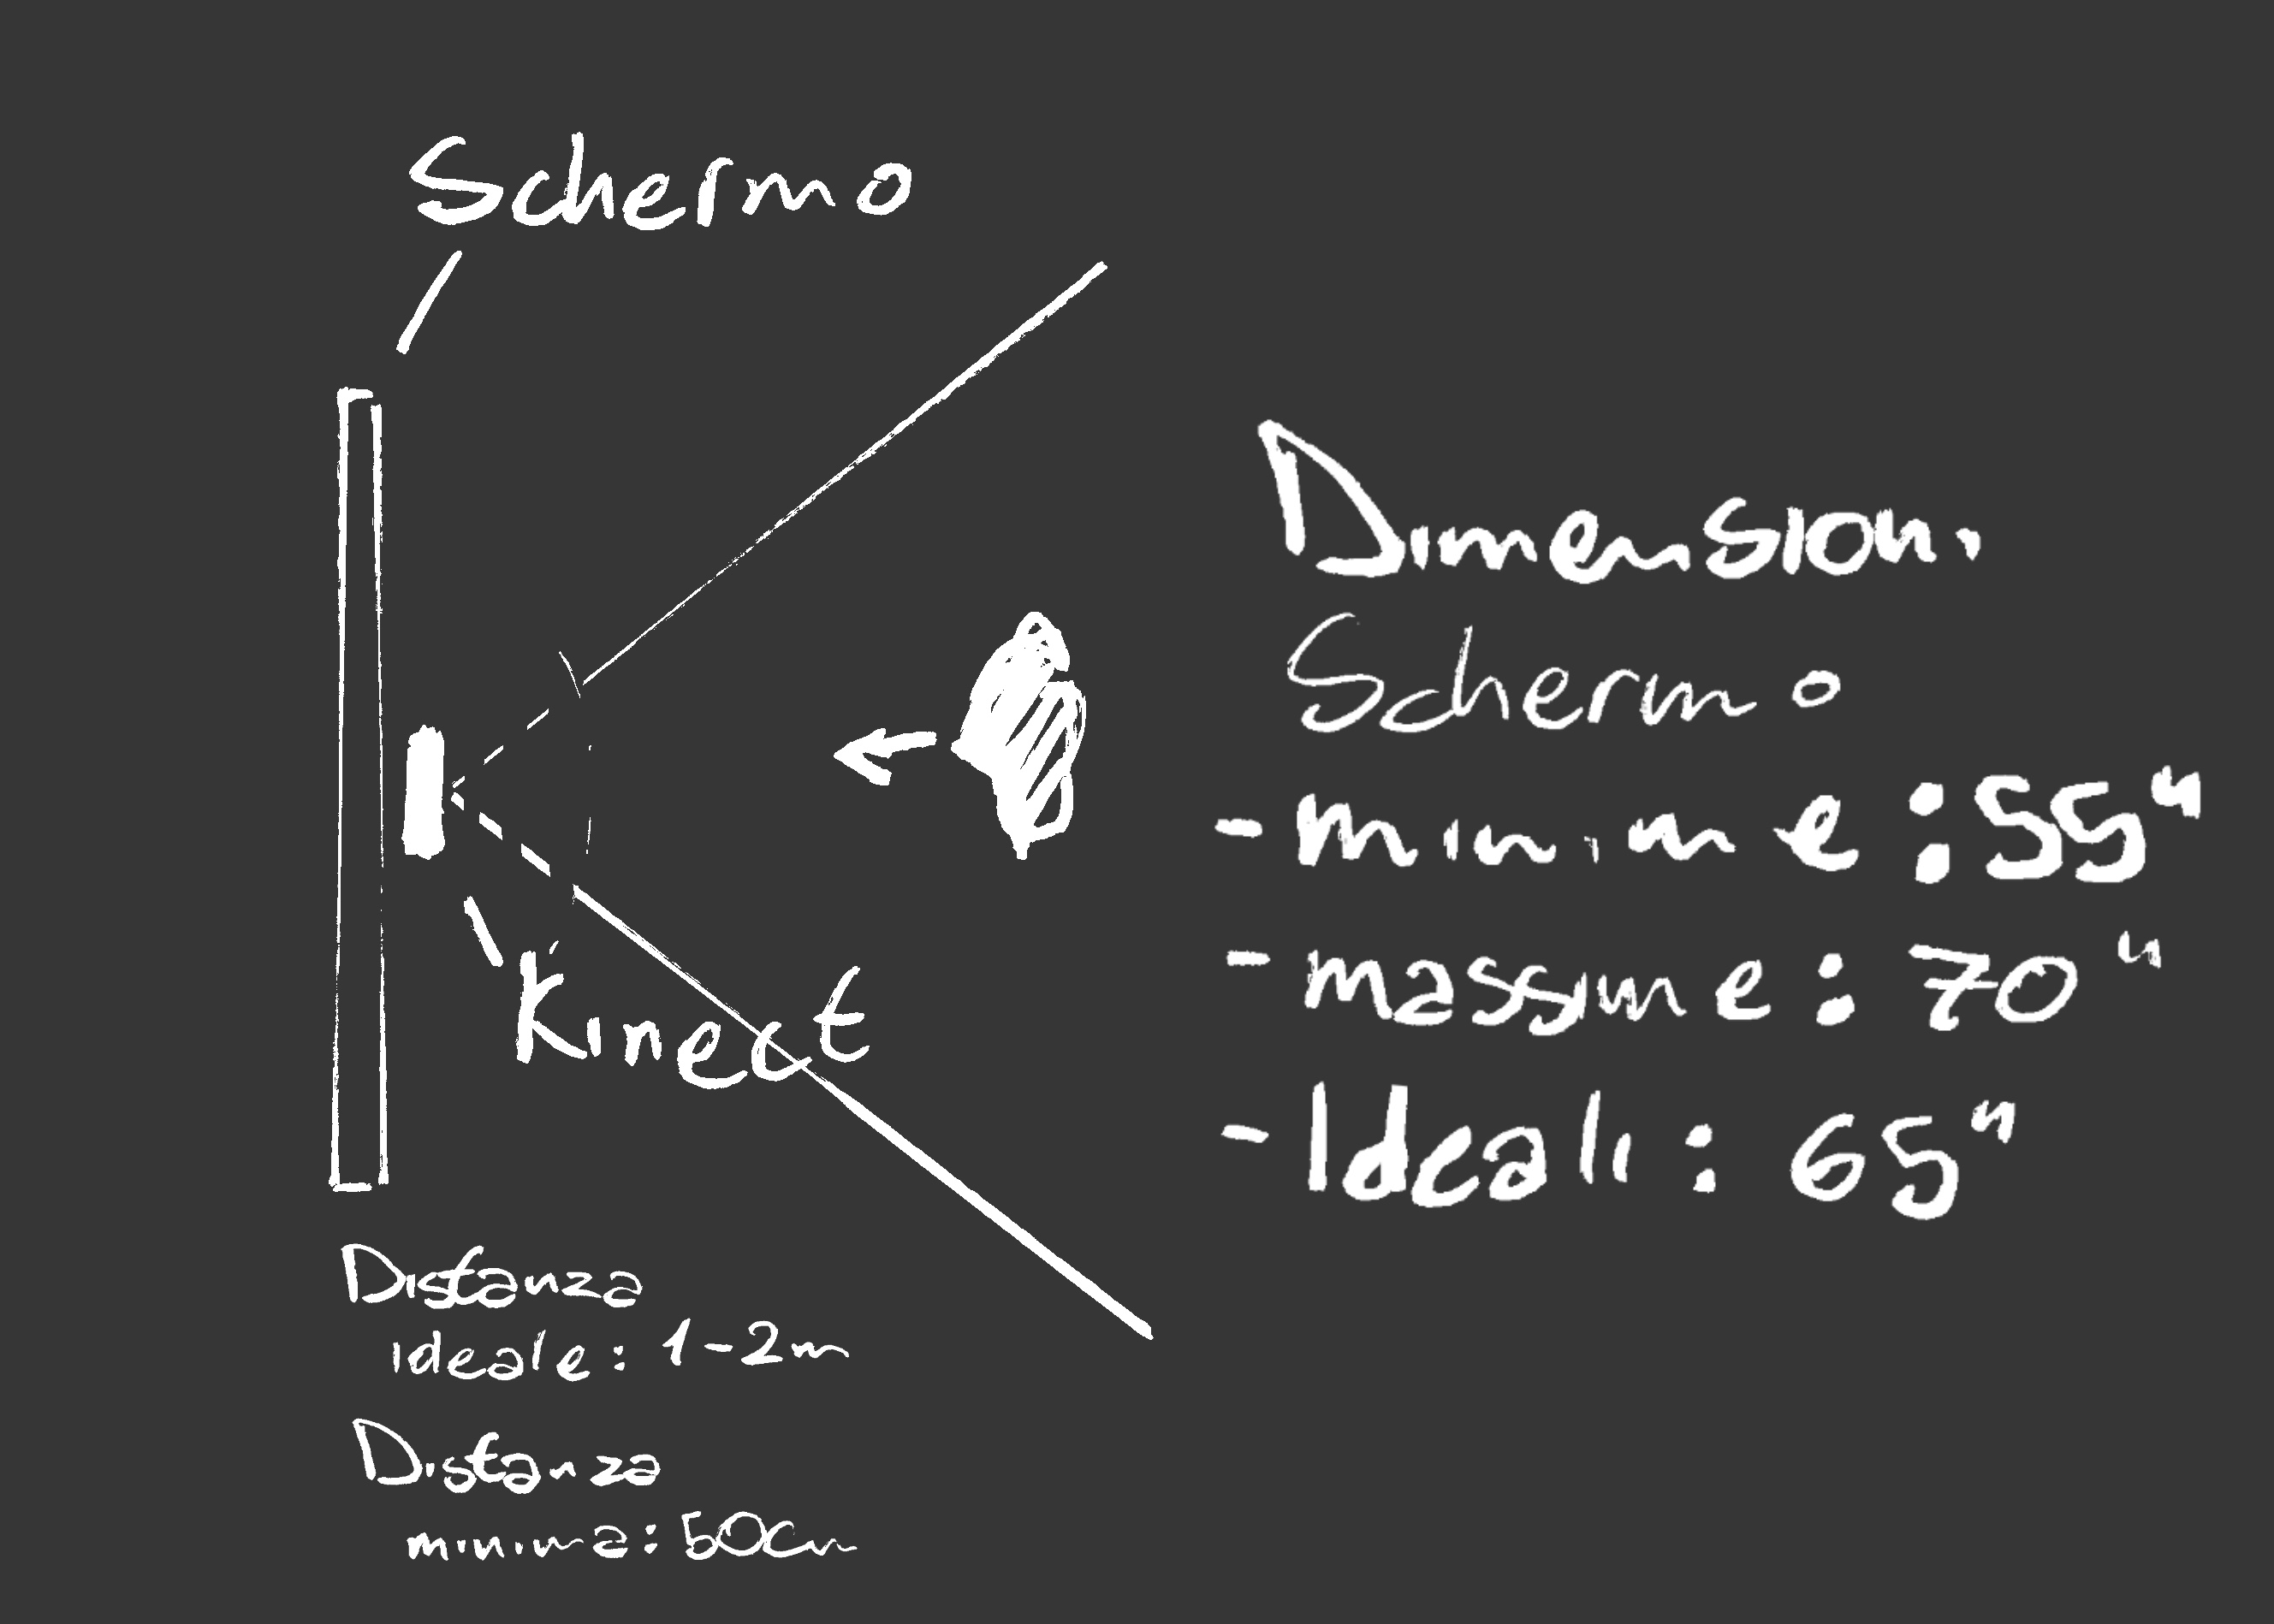 Schermo
Kinect
Distanza
ideale: 1-2m
Distanza
minima: 50cm
Dimensioni
Schermo
- minime: 55"
- massime: 70"
- Ideali: 65"